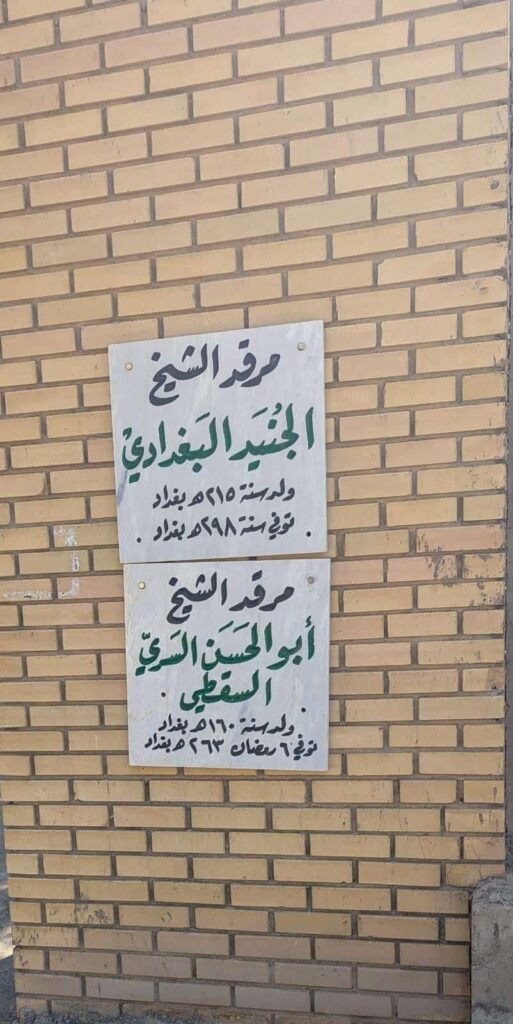 مرقد الشيخ
الجُنيَد البَغدادي
ولد سنة ٢١٥ هـ بغداد
توفي سنة ٢٩٨ هـ بغداد
مرقد الشيخ
أبو الحَسَن السَريّ
السقطي
ولد سنة ١٦٠ هـ بغداد
توفي ٦ رمضان ٢٦٣ هـ بغداد